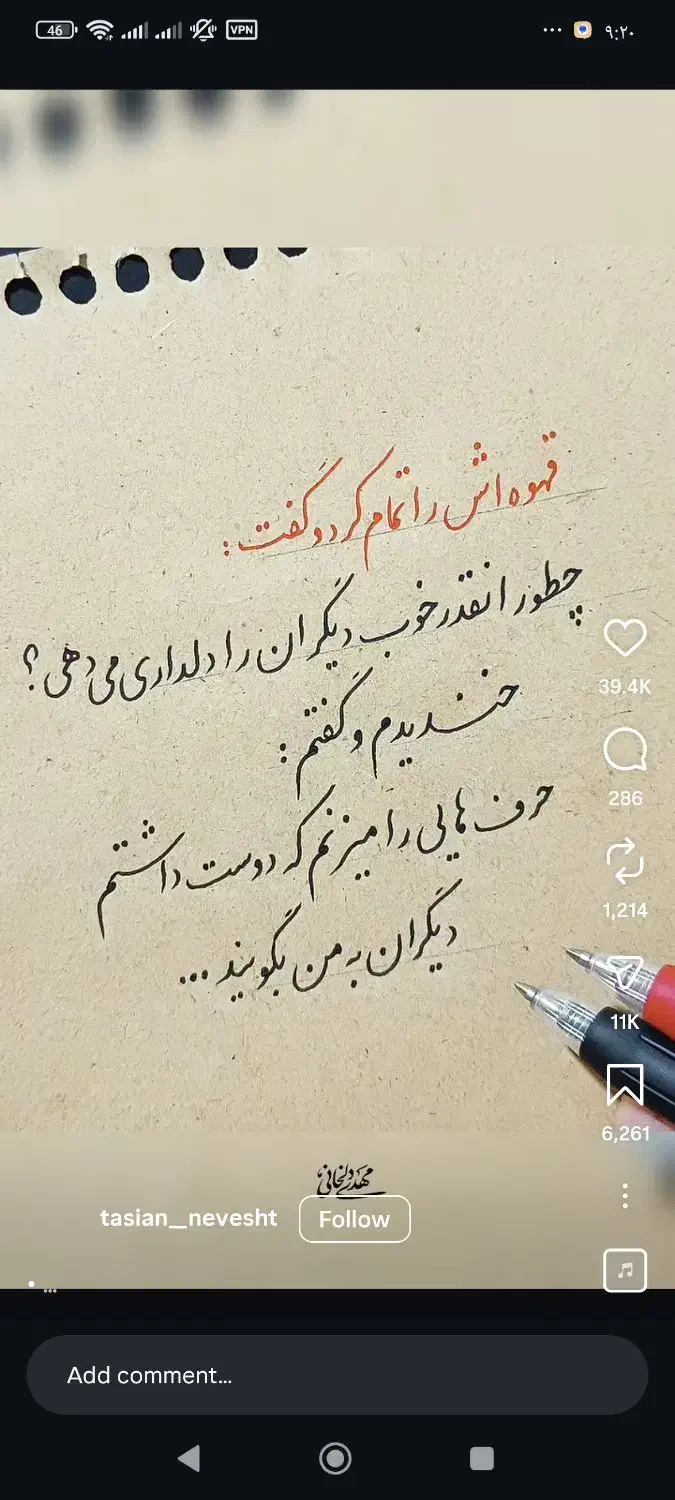 46 VPN ... ۹:۲۰
قهوه اش را تمام کرد و گفت :
چطور انقدر خوب دیگران را دلداری می دهی ؟
خندیدم و گفتم :
حرف هایی را میزنم که دوست داشتم
دیگران به من بگویند ...
39.4K
286
1,214
11K
6,261
tasian_nevesht Follow
Add comment...